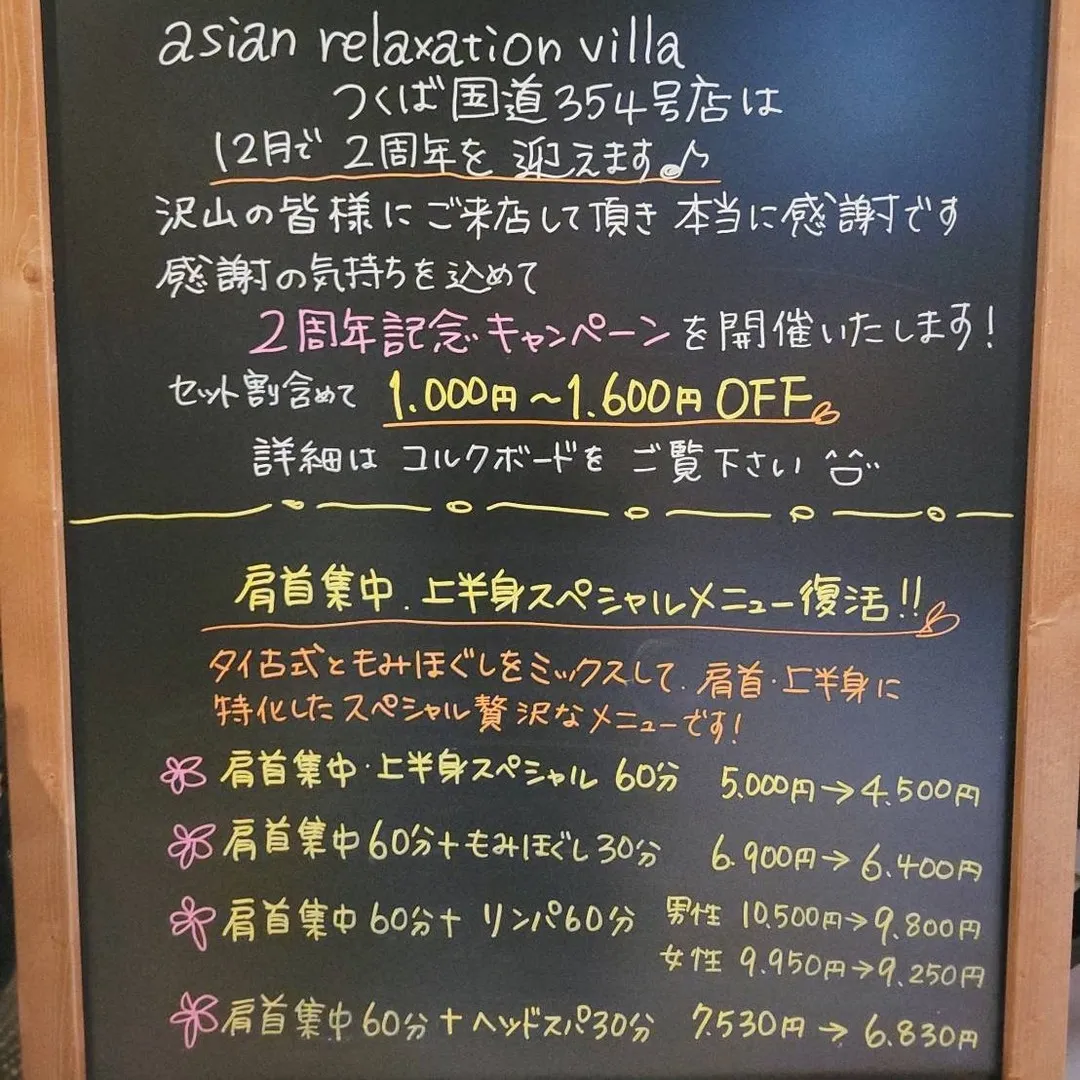 asian relaxation villa
つくば国道354号店は
12月で 2周年を 迎えます♪
沢山の皆様にご来店して頂き 本当に感謝です
感謝の気持ちを込めて
2周年記念キャンペーンを開催いたします!
セット割含めて 1.000円〜1.600円OFF
詳細は コルクボードを ご覧下さい
肩首集中.上半身スペシャルメニュー復活!!
タイ古式ともみほぐしをミックスして.肩首・上半身に
特化したスペシャル贅沢なメニューです!
肩首集中・上半身スペシャル 60分 5.000円→4.500円
肩首集中60分+もみほぐし30分 6.900円→6.400円
肩首集中60分+ リンパ60分 男性 10.500円→9.800円
女性 9.950円→9.250円
肩首集中60分+ヘッドスパ30分 7.530円→6.830円